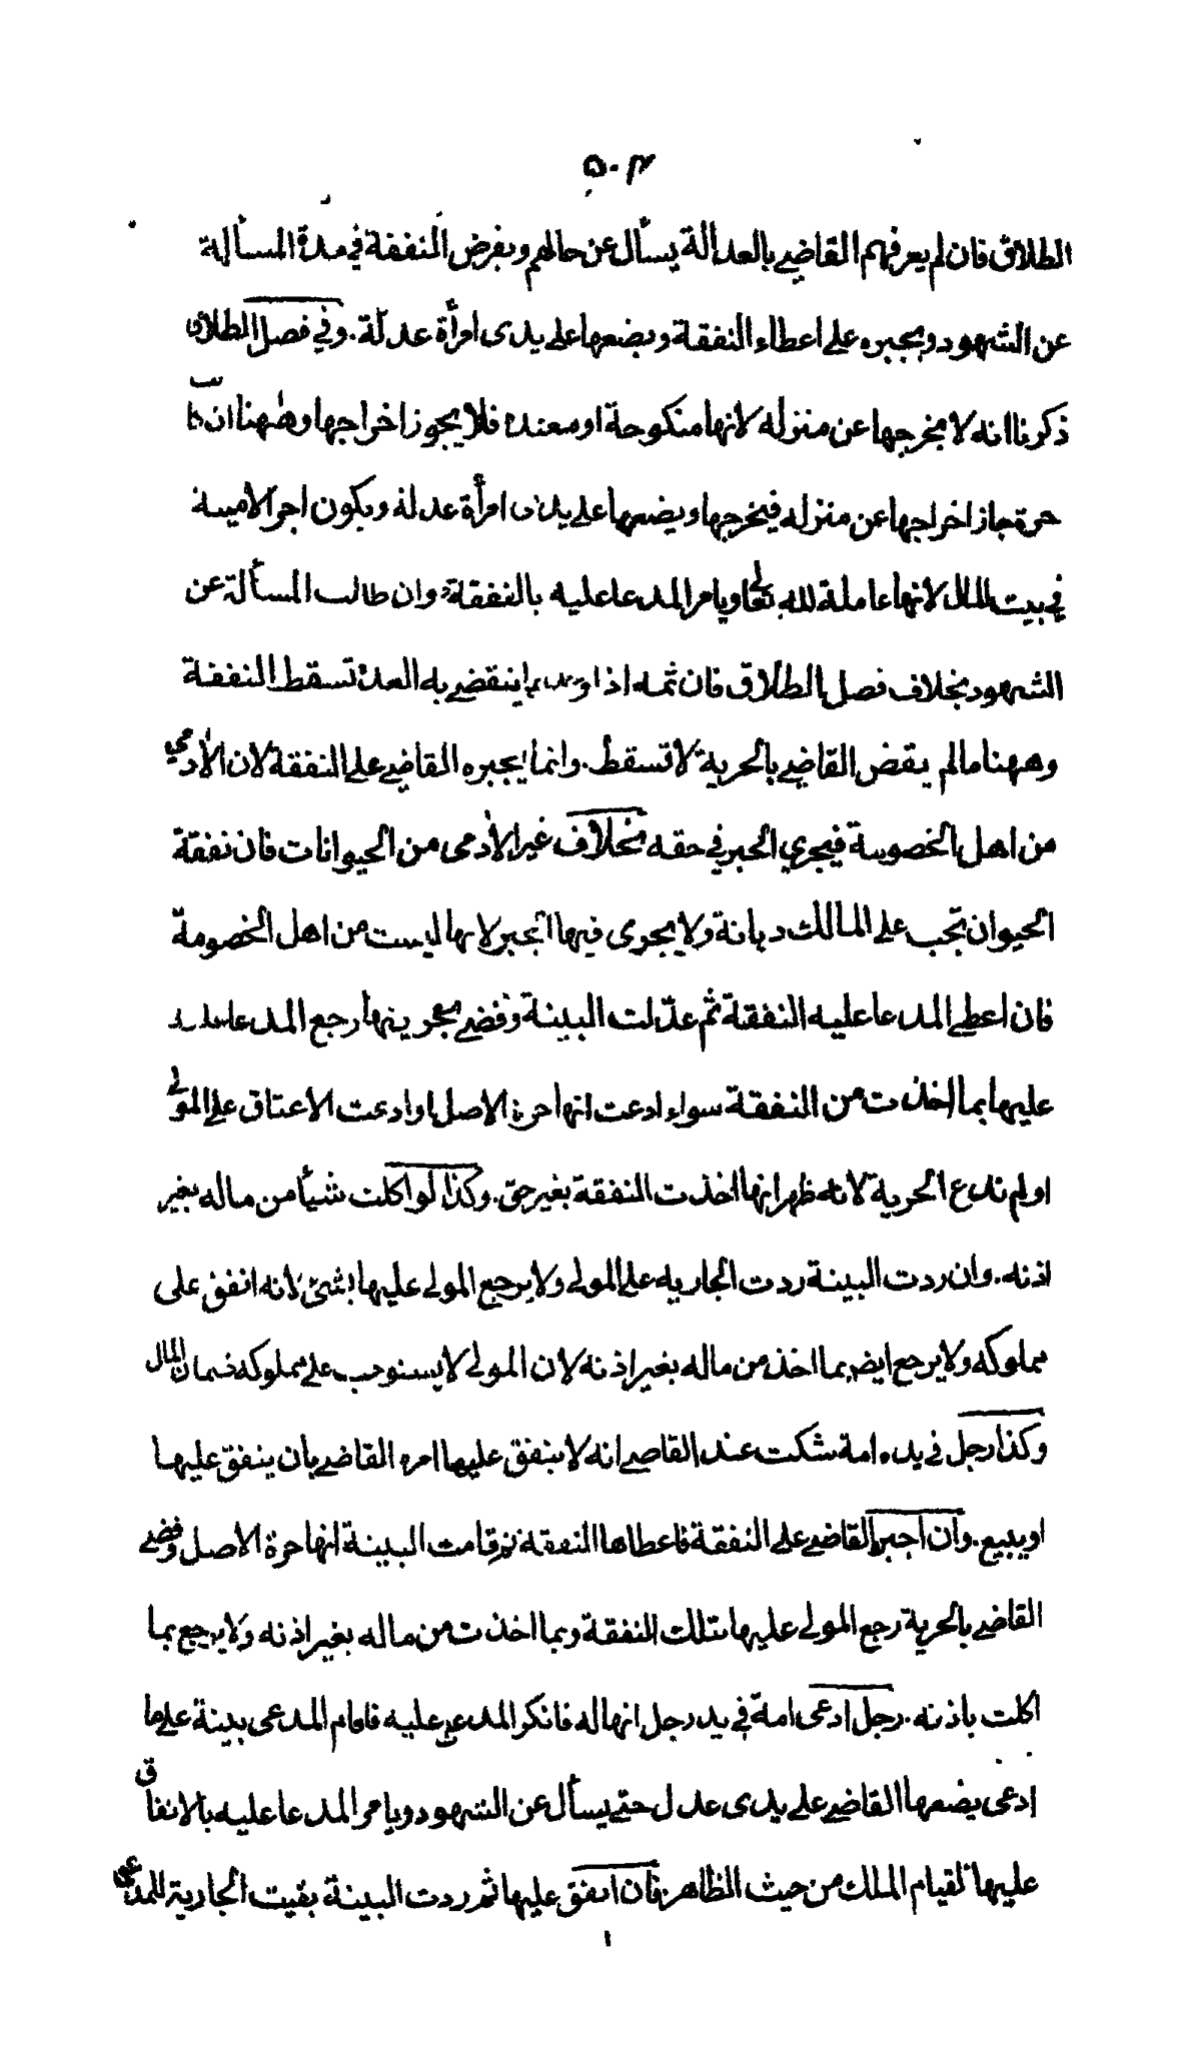 ٥٠٣
الطلاق فان لم يعرفهم القاضي بالعدالة يسأل عن حالهم ويفرض النفقة في مدة المسألة
عن الشهود ويجبره على اعطاء النفقة ويضعها على يدى امرأة عدلة. وفي فصل الطلاق
ذكرنا انه لا يخرجها عن منزله لانها منكوحة او معتدة فلا يجوز اخراجها وههنا ان كانت
حرة جاز اخراجها عن منزله فيخرجها ويضعها على يدى امرأة عدلة ويكون اجر الامينة
في بيت المال لانها عاملة لله تعالى ويامر المدعا عليه بالنفقة وان طالت المسألة عن
الشهود بخلاف فصل الطلاق فان ثمه اذا ينقضي به العدة تسقط النفقة
وههنا مالم يقض القاضي بالحرية لا تسقط. وانما يجبره القاضي على النفقة لان الآدمي
من اهل الخصومة فيجري الجبر في حقه بخلاف غير الآدمى من الحيوانات فان نفقة
الحيوان تجب على المالك ديانة ولا يجرى فيها الجبر لانها ليست من اهل الخصومة
فان اعطى المدعا عليه النفقة ثم عدّلت البينة وقضي بحريتها رجع المدعا عليه
عليها بما اخذت من النفقة سواء ادعت انها حرة الاصل او ادعت الاعتاق على المولى
او لم تدع الحرية لانه ظهر انها اخذت النفقة بغير حق. وكذا لو اكلت شيأ من ماله بغير
اذنه. وان ردت البينة ردت الجاريه على المولى ولا يرجع المولى عليها بشئ لانه انفق على
مملوكه ولا يرجع ايضا بما اخذ من ماله بغير اذنه لان المولى لا يستوجب على مملوكه ضمان المال
وكذا رجل في يده امة شكت عند القاضي انه لا ينفق عليها امره القاضي بان ينفق عليها
او يبيع. وان اجبر القاضي على النفقة فاعطاها النفقه ثم قامت البينة انها حرة الاصل وقضى
القاضي بالحرية رجع المولى عليها بتلك النفقة وبما اخذت من ماله بغير اذنه ولا يرجع بما
اكلت باذنه. رجل ادعى امة في يد رجل انها له فانكر المدعى عليه فاقام المدعى بينة على ما
ادعى يضعها القاضي على يدى عدل حتى يسأل عن الشهود ويامر المدعا عليه بالانفاق
عليها لقيام الملك من حيث الظاهر فان انفق عليها ثم ردت البينة بقيت الجارية للمدعى